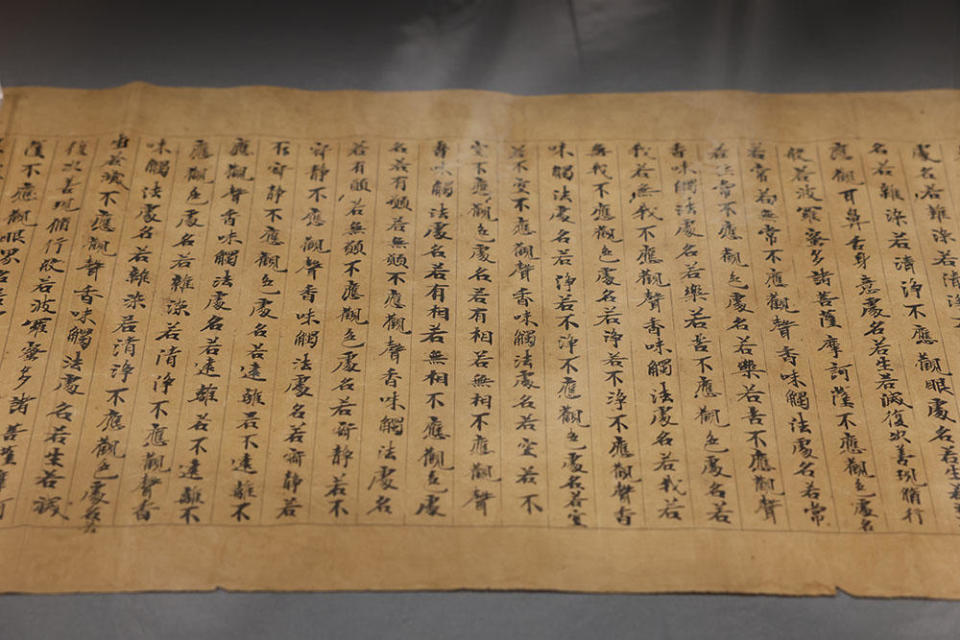 處名若雜染若清淨
名若雜染若清淨不應觀眼處名若生
應觀耳鼻舌身意處名若生若滅復次善現脩行
般若波羅蜜多諸菩薩摩訶薩不應觀色處名
若常若無常不應觀聲香味觸法處名若常
若無常不應觀色處名若樂若苦不應觀聲
香味觸法處名若樂若苦不應觀色處名若
我若無我不應觀聲香味觸法處名若我若
無我不應觀色處名若淨若不淨不應觀聲香
味觸法處名若淨若不淨不應觀色處名若空
若不空不應觀聲香味觸法處名若空若不
空不應觀色處名若有相若無相不應觀聲
香味觸法處名若有相若無相不應觀色處
名若有願若無願不應觀聲香味觸法處名
若有願若無願不應觀色處名若寂靜若不
寂靜不應觀聲香味觸法處名若寂靜若
不寂靜不應觀色處名若遠離若不遠離不
應觀聲香味觸法處名若遠離若不遠離不
應觀色處名若雜染若清淨不應觀聲香
味觸法處名若雜染若清淨不應觀色處名若
生若滅不應觀聲香味觸法處名若生若滅
復次善現脩行般若波羅蜜多諸菩薩摩訶
薩不應觀眼界名若